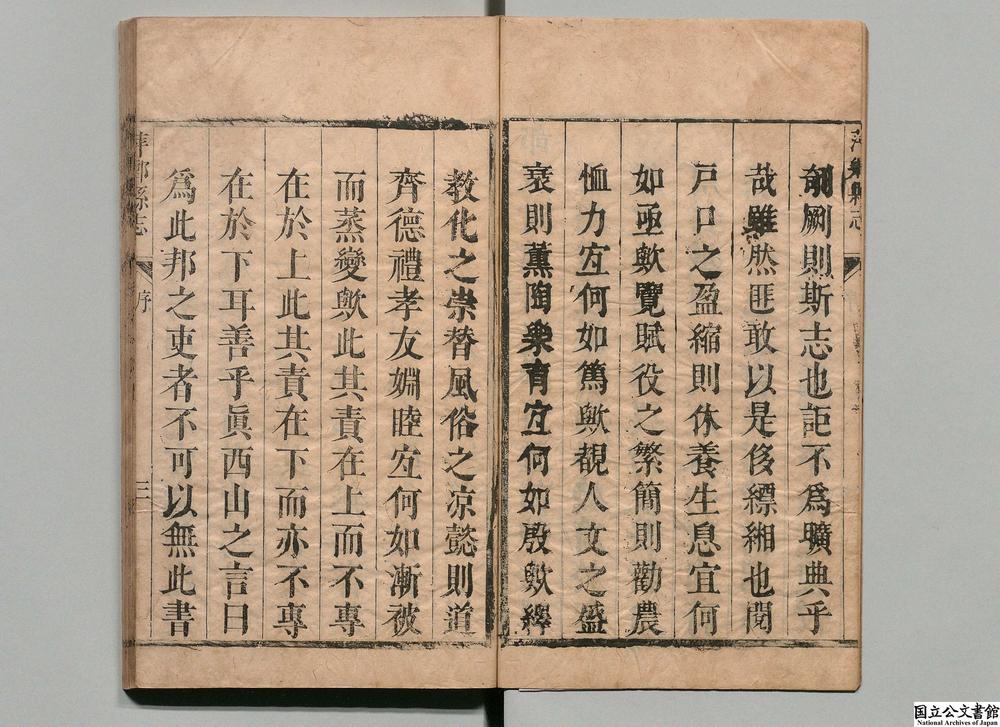 剞劂則斯志也詎不為曠典乎
哉雖然匪敢以是侈縹緗也閱
戶口之盈縮則休養生息宜何
如亟歟覽賦役之繁簡則勸農
恤力宜何如篤歟覩人文之盛
衰則薰陶樂育宜何如殷歟繹
教化之崇替風俗之凉懿則道
齊德禮孝友婣睦宜何如漸被
而蒸變歟此其責在上而不專
在於上此其責在下而亦不專
在於下耳善乎眞西山之言曰
為此邦之吏者不可以無此書
萍鄉縣志
序
三
国立公文書館
National Archives of Japan